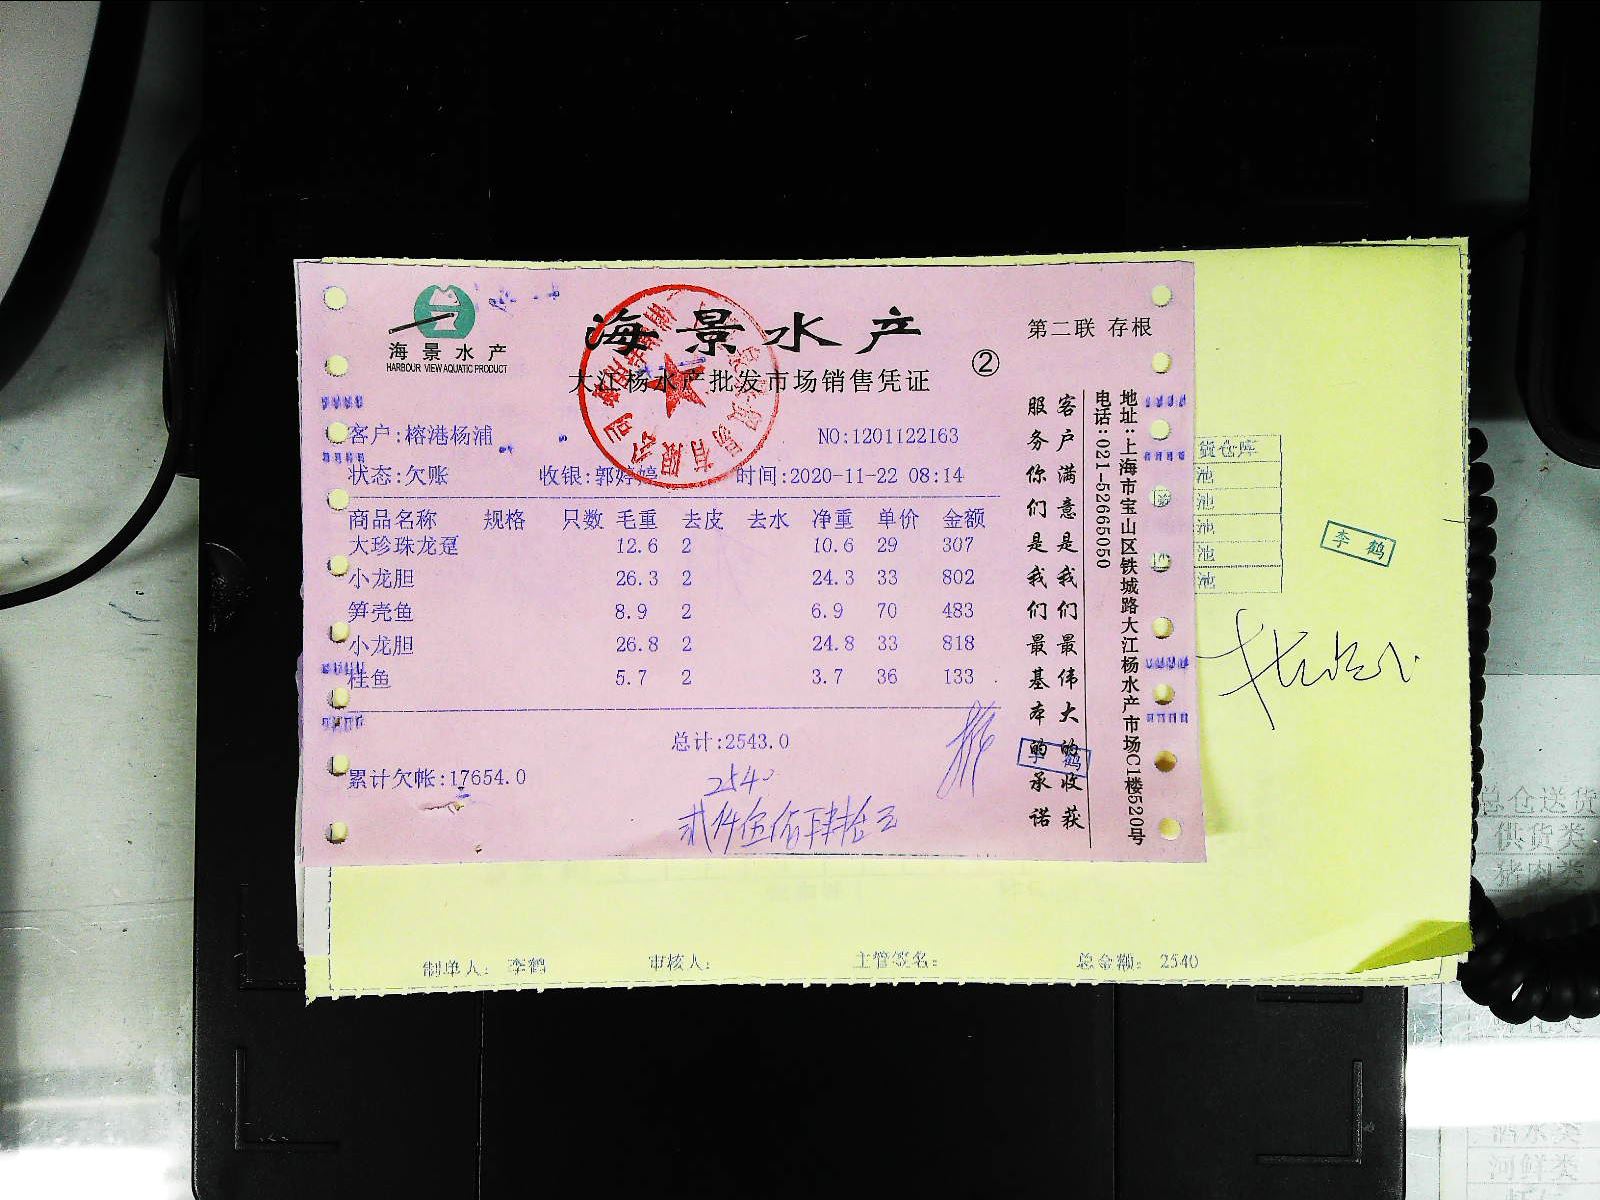 海景水产
HARBOUR VIEW AQUATIC PRODUCT
海景水产
大江杨水产批发市场销售凭证
②
第二联 存根
客户:榕港杨浦
NO:1201122163
状态:欠账 收银:郭婷婷 时间:2020-11-22 08:14
商品名称 规格 只数 毛重 去皮 去水 净重 单价 金额
大珍珠龙趸 12.6 2 10.6 29 307
小龙胆 26.3 2 24.3 33 802
笋壳鱼 8.9 2 6.9 70 483
小龙胆 26.8 2 24.8 33 818
桂鱼 5.7 2 3.7 36 133
总计:2543.0
累计欠帐:17654.0
2540
贰仟伍佰肆拾元
客户满意是我们最伟大的收获
服务你们是我们最基本的承诺
地址:上海市宝山区铁城路大江杨水产市场C1楼520号
电话:021-52665050
李鹤
货仓库
池
池
池
池
池
李鹤
制单人: 李鹤 审核人: 主管签名: 总金额: 2540
总仓送货
供货类
猪肉类
酒水类
河鲜类